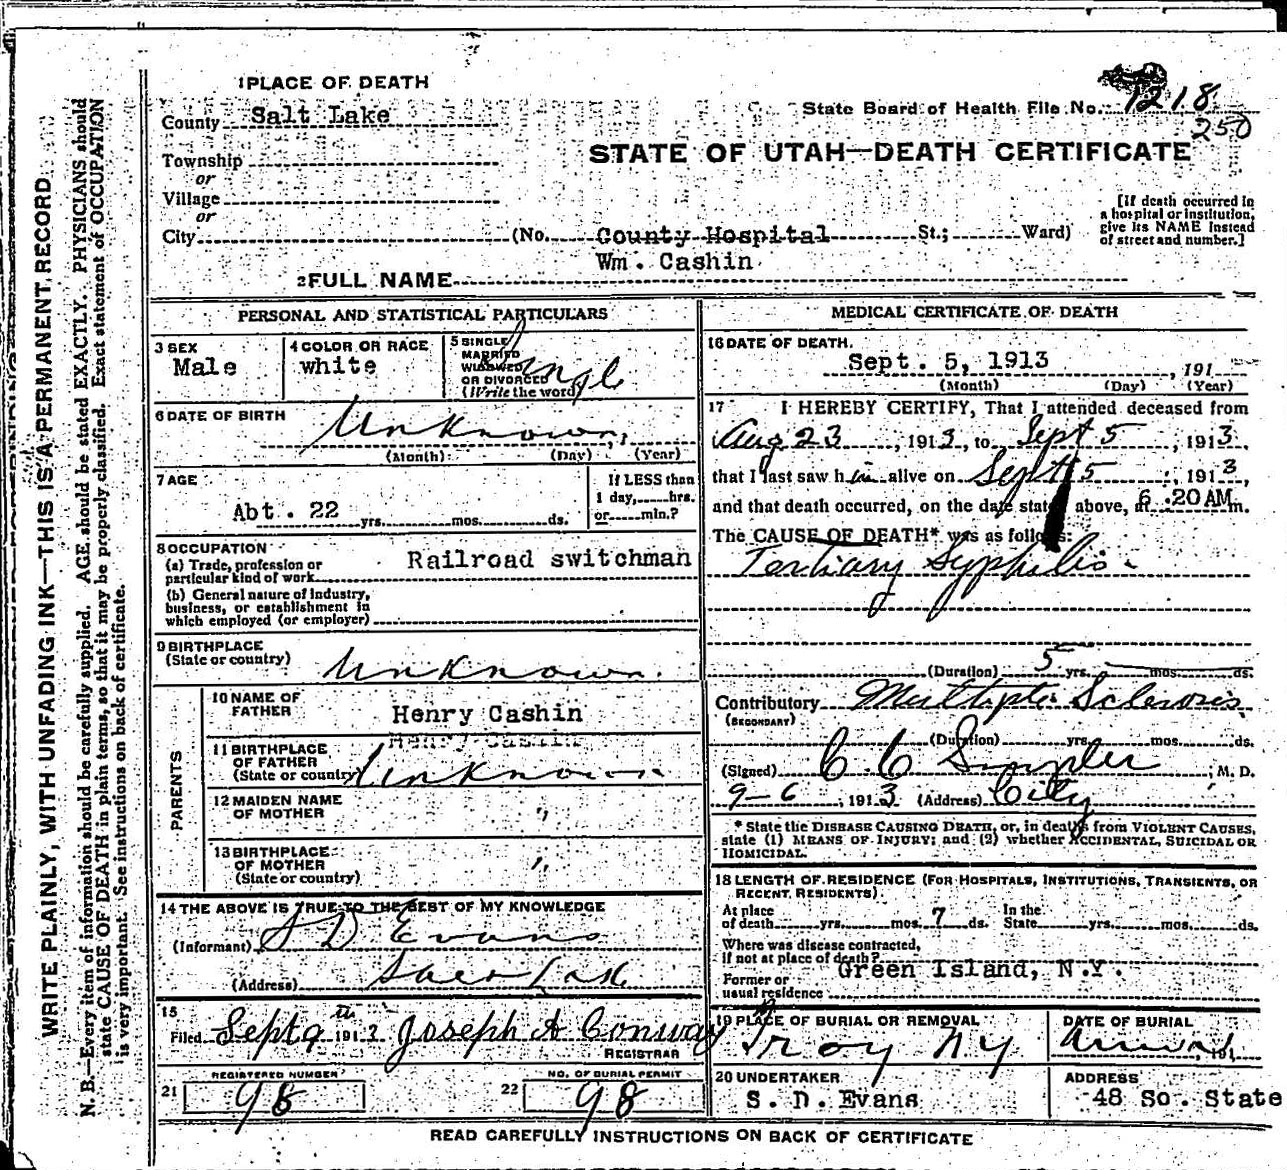 WRITE PLAINLY, WITH UNFADING INK—THIS IS A PERMANENT RECORD
N. B.—Every item of information should be carefully supplied. AGE should be stated EXACTLY. PHYSICIANS should
state CAUSE OF DEATH in plain terms, so that it may be properly classified. Exact statement of OCCUPATION
is very important. See instructions on back of certificate.
1 PLACE OF DEATH
County Salt Lake
State Board of Health File No. 1218
250
STATE OF UTAH—DEATH CERTIFICATE
Township
or
Village
or
City (No. County Hospital St.; Ward)
[If death occurred in
a hospital or institution,
give its NAME instead
of street and number.]
2 FULL NAME Wm. Cashin
PERSONAL AND STATISTICAL PARTICULARS
3 SEX
Male
4 COLOR OR RACE
white
5 SINGLE
MARRIED
WIDOWED
OR DIVORCED
(Write the word)
Single
6 DATE OF BIRTH
Unknown
(Month) (Day) (Year)
7 AGE
Abt. 22 yrs. mos. ds.
If LESS than
1 day, hrs.
or min.?
8 OCCUPATION
(a) Trade, profession or
particular kind of work Railroad switchman
(b) General nature of Industry,
business, or establishment in
which employed (or employer)
9 BIRTHPLACE
(State or country) Unknown.
PARENTS
10 NAME OF
FATHER Henry Cashin
11 BIRTHPLACE
OF FATHER
(State or country) Unknown
12 MAIDEN NAME
OF MOTHER "
13 BIRTHPLACE
OF MOTHER
(State or country) "
14 THE ABOVE IS TRUE TO THE BEST OF MY KNOWLEDGE
(Informant) S D Evans
(Address) Salt Lake
15
Filed Sept 9th 1913 Joseph A Conway
REGISTRAR
REGISTERED NUMBER
21 98
NO. OF BURIAL PERMIT
22 98
MEDICAL CERTIFICATE OF DEATH
16 DATE OF DEATH.
Sept. 5, 1913 , 191
(Month) (Day) (Year)
17 I HEREBY CERTIFY, That I attended deceased from
Aug 23, 1913, to Sept 5, 1913,
that I last saw him alive on Sept 5, 1913,
and that death occurred, on the date stated above, at 6.20 AM m.
The CAUSE OF DEATH* was as follows:
Tertiary Syphilis
(Duration) 5 yrs. mos. ds.
Contributory Multiple Sclerosis
(SECONDARY)
(Duration) yrs. mos. ds.
(Signed) C C , M. D.
9-6, 1913 (Address) City
* State the DISEASE CAUSING DEATH, or, in deaths from VIOLENT CAUSES,
state (1) MEANS OF INJURY; and (2) whether ACCIDENTAL, SUICIDAL OR
HOMICIDAL.
18 LENGTH OF RESIDENCE (FOR HOSPITALS, INSTITUTIONS, TRANSIENTS, OR
RECENT RESIDENTS).
At place
of death yrs. mos. 7 ds. In the
State yrs. mos. ds.
Where was disease contracted,
If not at place of death?
Former or
usual residence Green Island, N.Y.
19 PLACE OF BURIAL OR REMOVAL
Troy NY
DATE OF BURIAL
, 191
20 UNDERTAKER
S. D. Evans
ADDRESS
48 So. State
READ CAREFULLY INSTRUCTIONS ON BACK OF CERTIFICATE